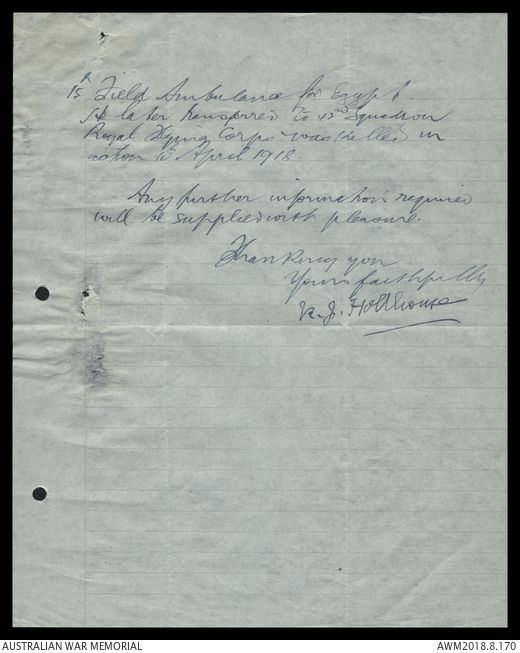 15th Field Ambulance for Egypt.
He later transferred to 42nd Squadron
Royal Flying Corps was killed in
action 15 April 1918.
Any further information required
will be supplied with pleasure.
Thanking you.
Yours faithfully
J. Holthouse
AUSTRALIAN WAR MEMORIAL
AWM2018.8.170